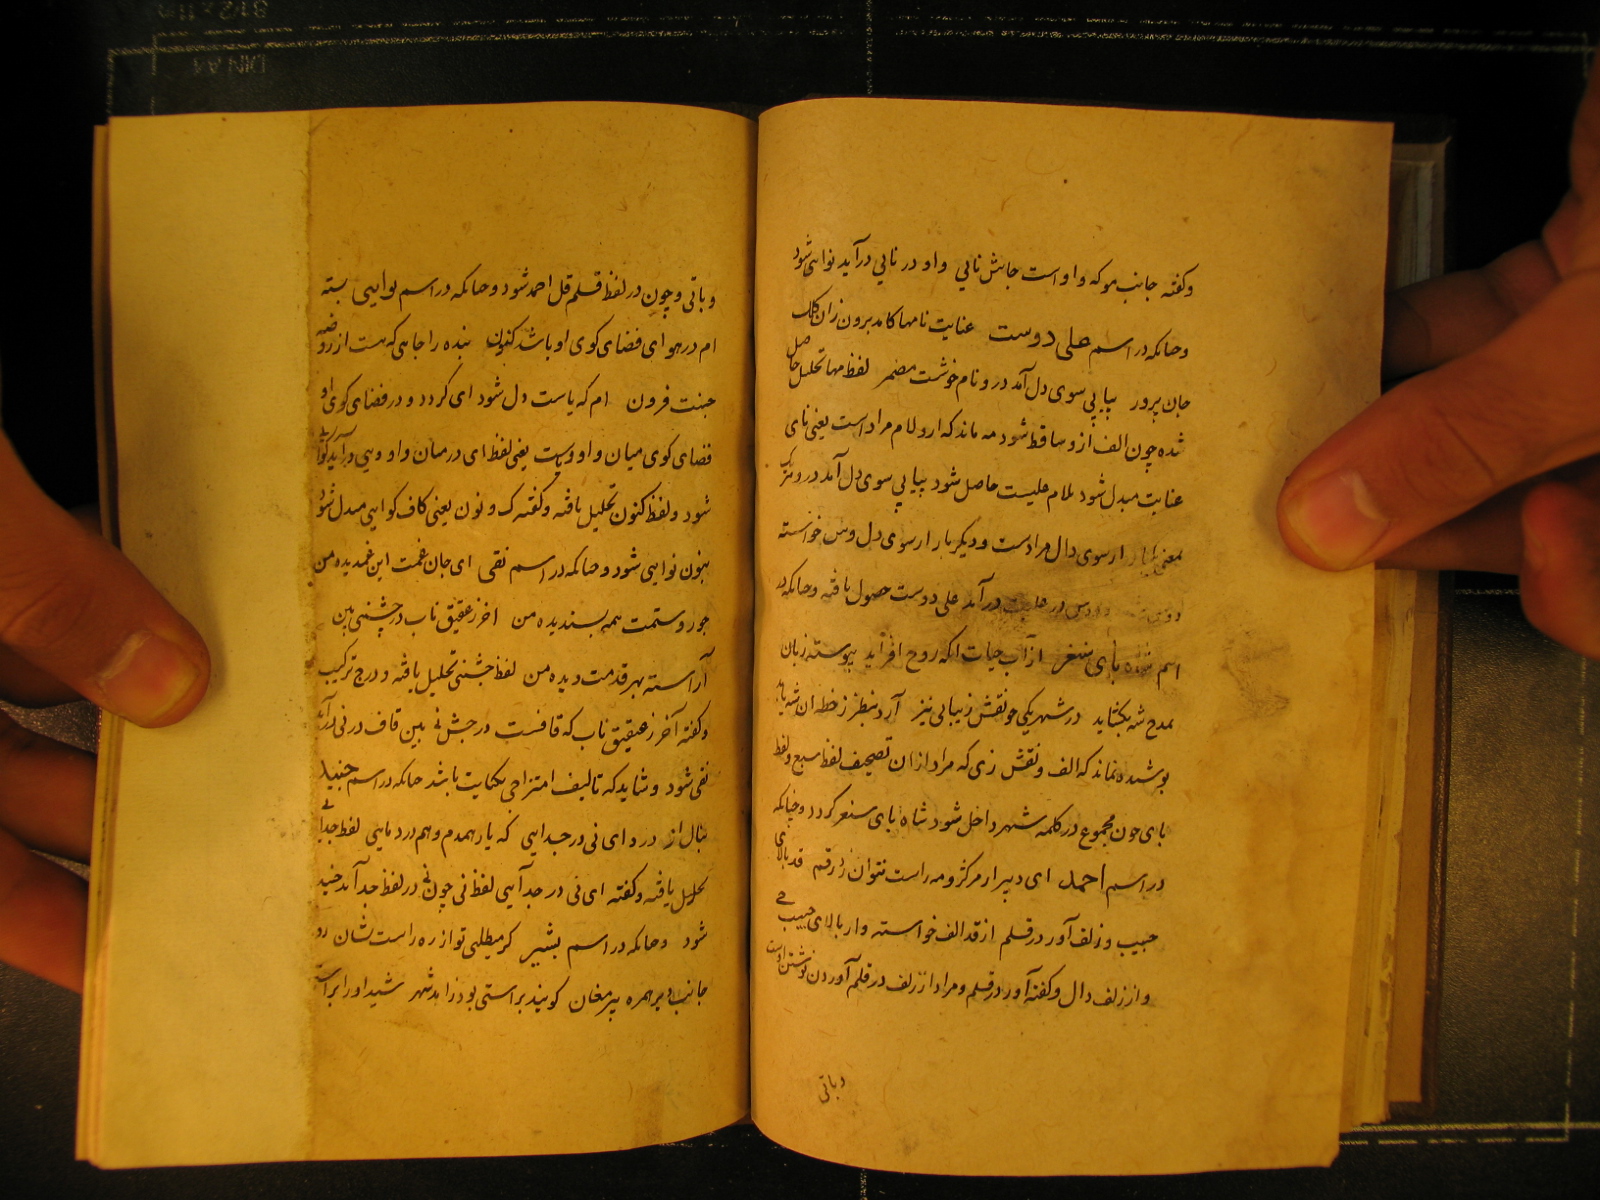 وکفته جانب موکه واو است جانش نایی واو در نایی درآید نوایی شود
وچانکه در اسم علی دوست عنایت نامها کامد برون زان کلک
جان پرور بیایی سوی دل آمد در و نام خوشت مضمر لفظ مها تحلیل حاصل
شده چون الف از و ساقط شود مه ماند که ازو لام مراد است یعنی نای
عنایت مبدل شود بلام علیست حاصل شود بیایی سوی دل آمد در و
از سوی دال مراد است و دیکر بار از سوی دل وس خواسته
در درآمد علی دوست حصول یافته وچانکه در
اسم شاه بابای سنغر از آب حیات انکه روح افزاید پیوسته زبان
بمدح شه بکشاید در شهر یکی چو نقش زیبائی نیز آرد بنظر ز خطه ان شه باید
پوشیده نماند که الف و نقش زی که مراد از ان تصحیف لفظ سبع ولفظ
بای چون مجموع در کلمه شهر داخل شود شاه بابای سنغر کردد وچنانکه
در اسم احمد ای دبیر ار مرکز و مه راست نتوان زد رقم قد بالای
حبیب و زلف آور در قلم از قد الف خواسته و از بالای حبیب ح
و از زلف دال وکفته آور در قلم و مراد از زلف در قلم آوردن نوشتن اوست
وباتی
وباتی وچون در لفظ قلم قل احمد شود وچانکه در اسم نوایی بسته
ام در هوای فضای کوی او باشد کنون بنده را جاهی که هست از روضه
جنت فزون ام که یاست دل شود ای کردد و در فضای کوی او
فضای کوی میان واو ویست یعنی لفظ ای درمیان واو ویی درآید کوا
شود ولفظ کنون تحلیل یافته وکفته ک و نون یعنی کاف کوایی مبدل شود
بنون نوایی شود وچانکه در اسم نقی ای جان غمت این غمدیده من
جور و ستمت همه پسندیده من اخر ز عقیق ناب در چشنی بین
آراسته بهر قدمت دیده من لفظ چشنی تحلیل یافته و درج ترکیب
وکفته آخر ز عقیق ناب که قافست در چش نی بین قاف در نی درآید
نقی شود وشاید که تالیف امتزاجی بکنایت باشد چانکه در اسم جنید
بنال از درد ای نی در جدایی که یار همدم و هم درد مایی لفظ جدایی
تحلیل یافته وکفته ای نی در جد آیی لفظ نی چون در لفظ جد آید جنید
شود وچانکه در اسم بشیر کر میطلبی تو از ره راست نشان رو
جانب دیر همره پیر مغان کویند براستی بود زاهد شهر شید او را براست